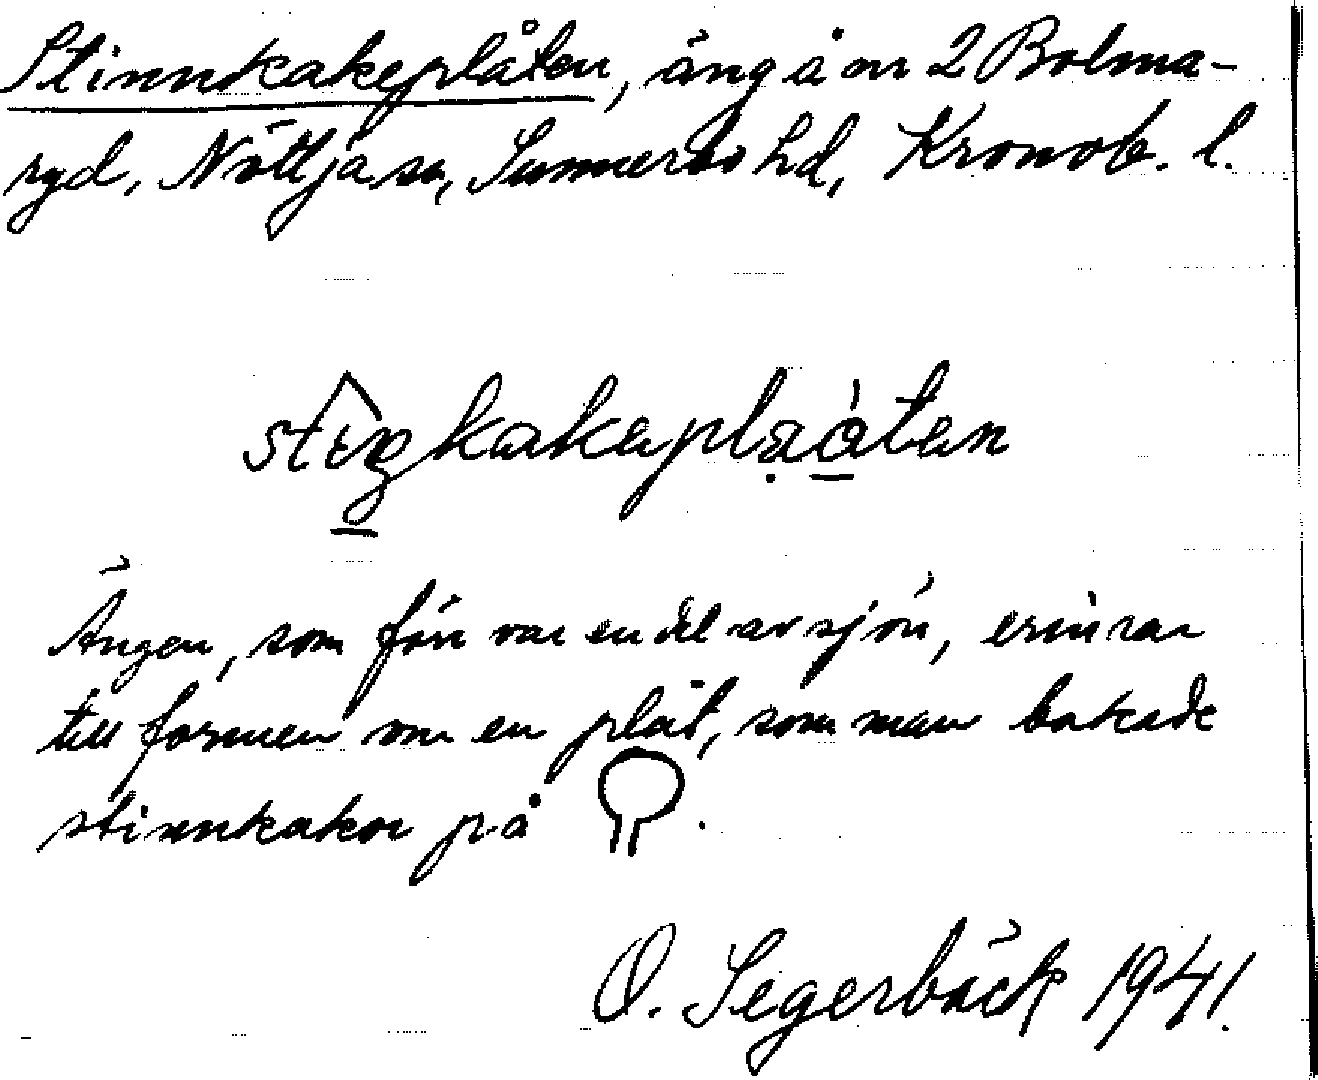 Stinnkakeplåten, äng å nr 2 Bolma-
ryd, Nöttja sn, Sunnerbo hd, Kronob. l.
stiŋkakeplaåten
Ängen, som förr var en del av sjön, erinrar
till formen om en plåt, som man bakade
stinnkakor på
O. Segerbäck 1941.